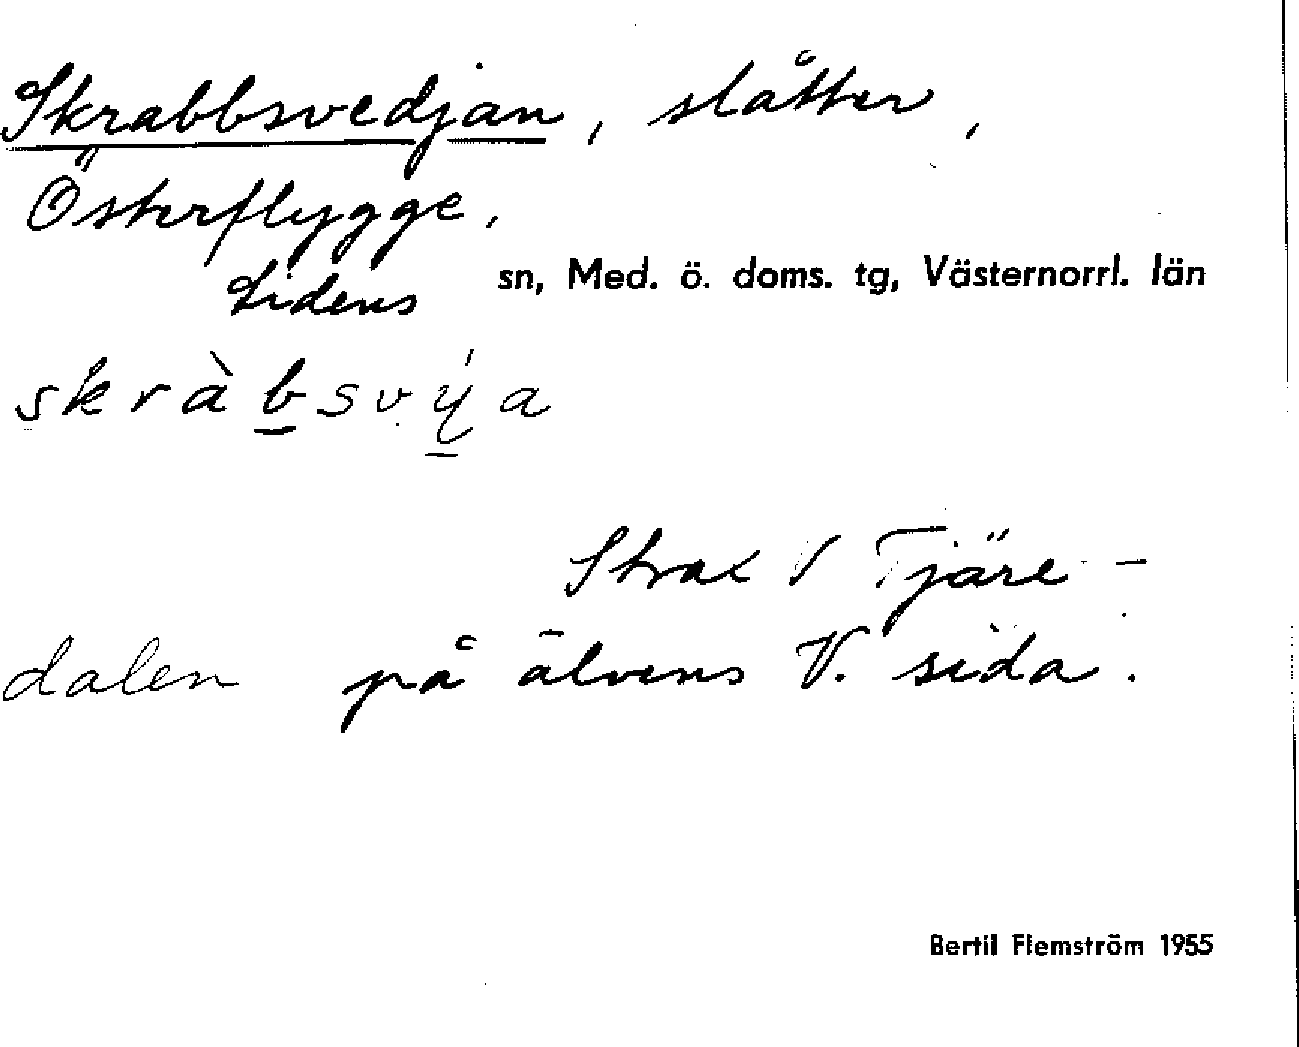 Skrabbsvedjan, slåtter,
Österflygge,
Lidens sn, Med. ö. doms. tg, Västernorrl. län
skràbsvýa
Strax V Tjäre-
dalen på älvens V. sida.
Bertil Flemström 1955